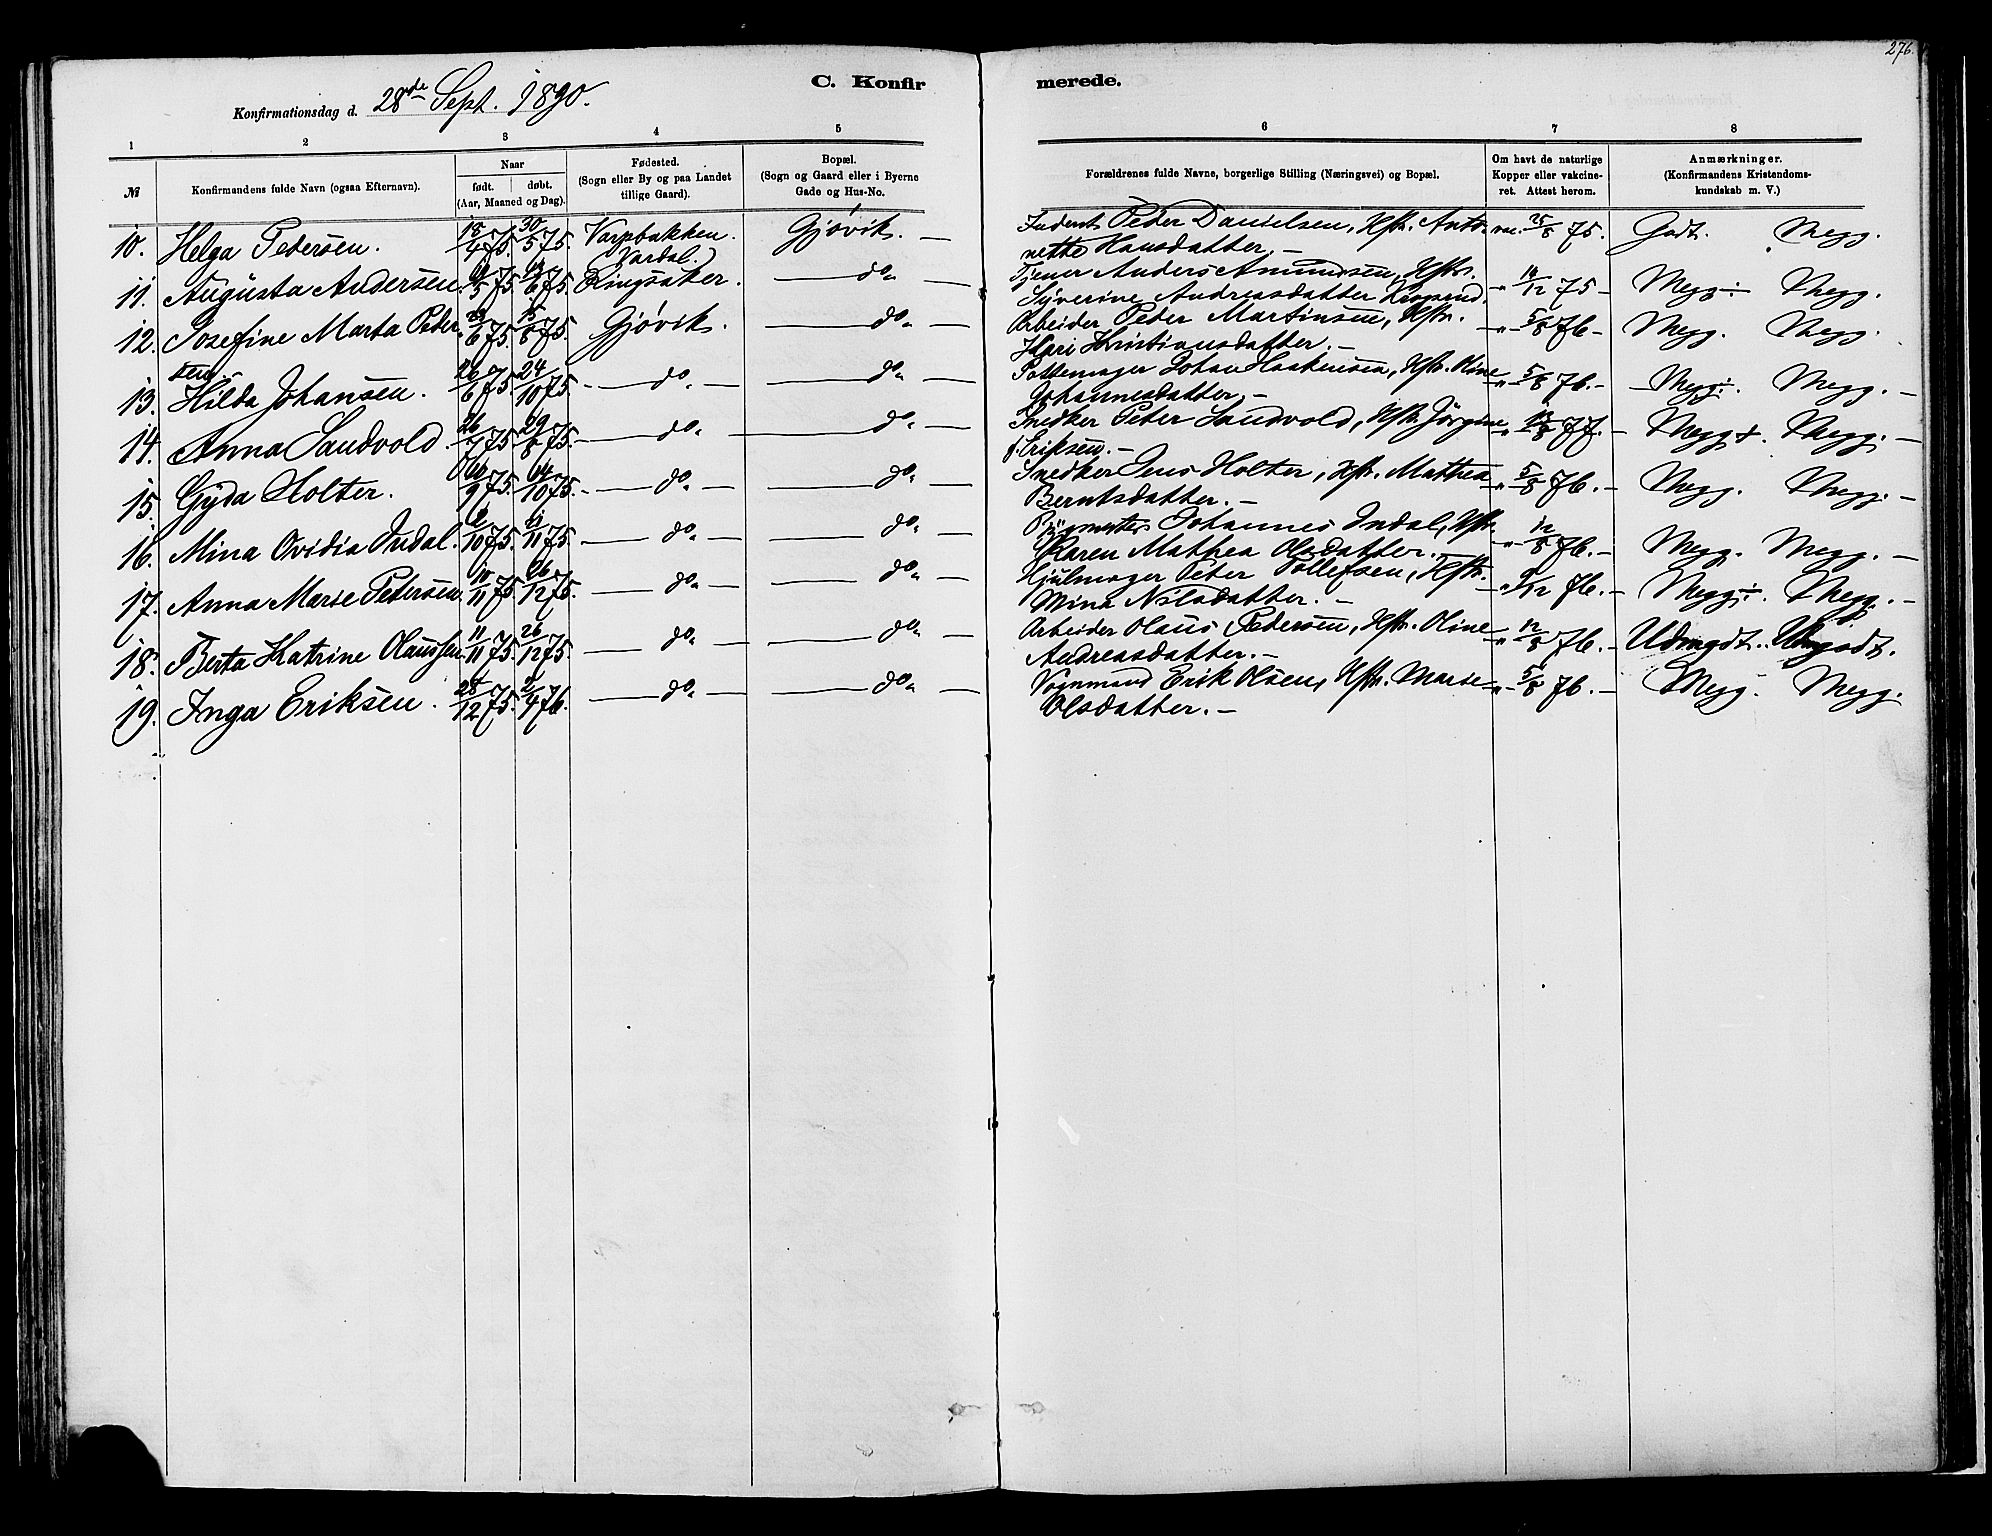 276.
C. Konfirmerede.
Konfirmationsdag d. 28de Sept. 1890.
1 2 3 4 5 6 7 8
№
Konfirmandens fulde Navn (ogsaa Efternavn).
Naar
født. døbt.
(Aar, Maaned og Dag).
Fødested.
(Sogn eller By og paa Landet
tillige Gaard).
Bopæl.
(Sogn og Gaard eller i Byerne
Gade og Hus-No.
Forældrenes fulde Navne, borgerlige Stilling (Næringsvei) og Bopæl.
Om havt de naturlige
Kopper eller vakcine-
ret. Attest herom.
Anmærkninger.
(Konfirmandens Kristendoms-
kundskab m. V.)
10. Helga Pedersen. 18/4 75. 30/5 75. Varpbakken. Gjøvik. — Peder Danielsen, Hstr. Anto- 25/8 75. Godt. Megg.
Vardal.) nette Hansdatter. —
11. Augusta Andersen. 5 75. 6 75. Ringsaker. — do — Tjener Anders Amundsen, Hstr. 12 75 — Megg ÷ Megg.
Syverine Andreasdatter
12. Josefine Marta Peder- 6 75. 15/8 75. Gjøvik. — do — Arbeider Peder Martinsen, Hstr. -"- 5/8 76 — Megg. Megg.
sen. Kari Kristiansdatter. —
13. Hilda Johansen. 26/6 75. 24/10 75. — do — — do — Pottemager Johan Haakensen, Hstr. Oline -"- 5/8 76. — Megg ÷. Megg. —
Johannesdatter. —
14. Anna Sandvold. 26/7 75. 29/8 75. — do — — do — Snedker Peter Sandvold, Hstr. Jörgine -"- 8 77. — Megg +. Megg. —
f. Eriksen. —
15. Gyda Holter. 9 75. 10 75. — do — — do — Snedker Jens Holter, Hstr. Mathea -"- 5/8 76. — Megg. Megg. —
Berntsdatter. —
16. Mina Ovidia Indal. 10 75. 11 75. — do — — do — Johannes Indal, Hstr. -"- 12/8 76. — Megg. Megg. —
Karen Mathea Olsdatter. —
17. Anna Marie Petersen. 10/11 75. 26/12 75. — do — — do — Hjulmager Peter Tollefsen, Hstr. -"- 12 76. — Megg ÷. Megg. —
Mina Nilsdatter. —
18. Berta Katrine Olaussen 11/11 75. 26/12 75. — do — — do — Arbeider Olaus Pedersen, Hstr. Oline -"- 12/8 76. — Udmgdt. Umgodt.
Andreasdatter. —
19. Inga Eriksen. 28/12 75. 2/4 76. — do — — do — Vognmand Erik Olsen, Hstr. Marie -"- 5/8 76. — Megg. Megg.
Olsdatter. —